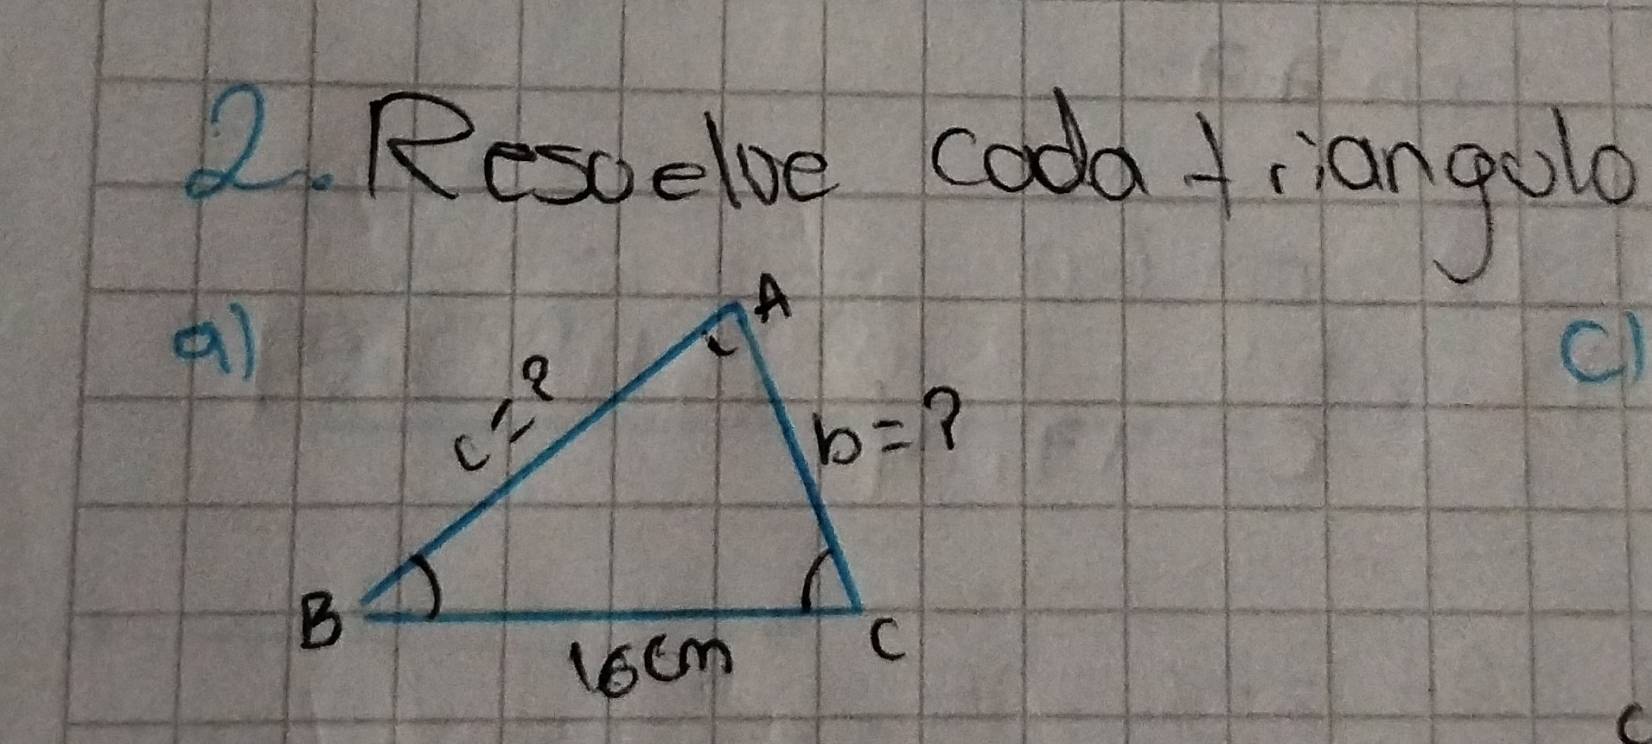 2. Resuelve cada triangulo
a)
A
c)
c=?
b=?
B
16cm
C